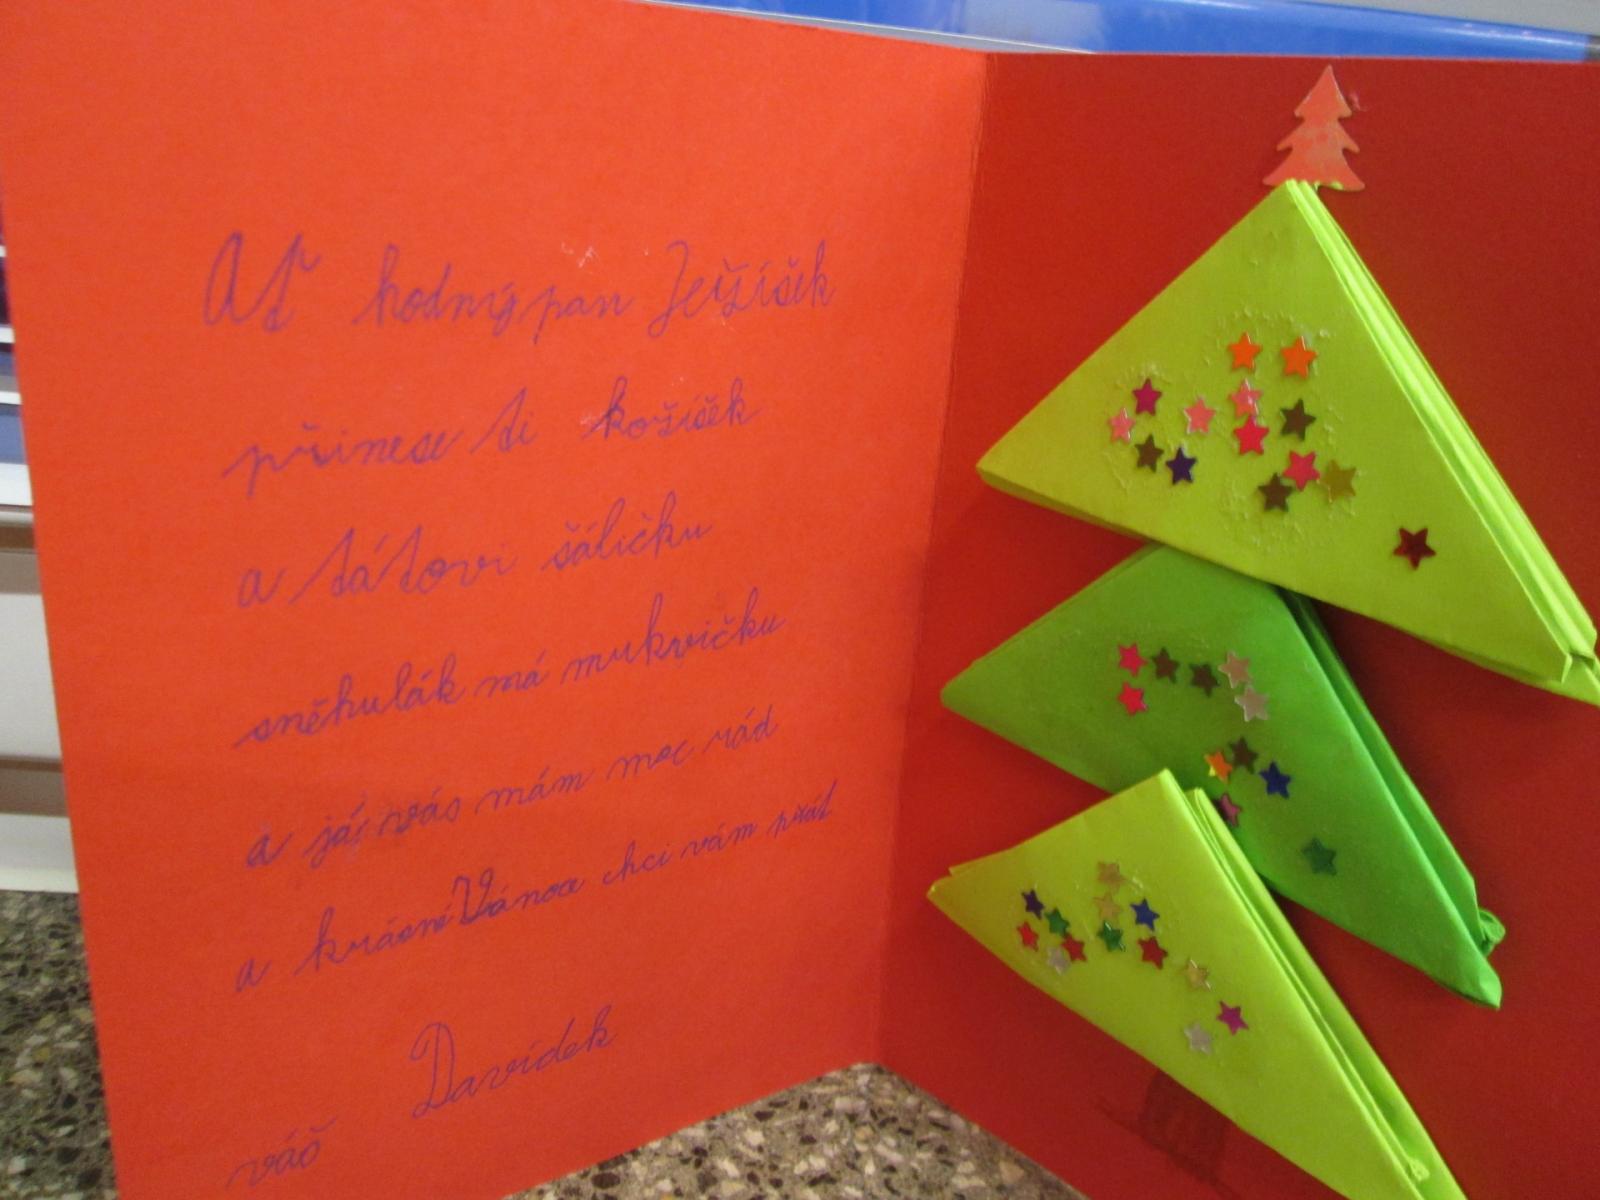 Ať hodný pan Ježíšek
přinese ti kožíšek
a tátovi šáličku
sněhulák má mukvičku
a já vás mám moc rád
a krásné Vánoce chci vám přát
Davídek
váš